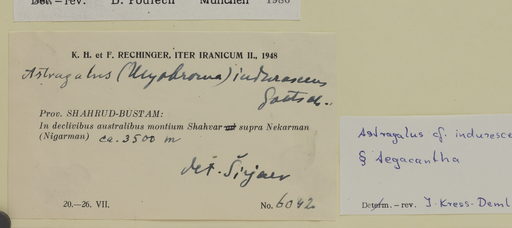 Det. – rev. D. Podlech München 1980
K. H. et F. RECHINGER, ITER IRANICUM II., 1948
Astragalus (Myobroma) indurascens
Prov. SHAHRUD-BUSTAM:
In declivibus australibus montium Shahvar supra Nekarman
(Nigarman) ca. 3500 m
det. Širjaev
20.—26. VII. No. 6042
Astragalus cf. induresce
§ Aegacantha
Determ. – rev. J. Kress-Deml